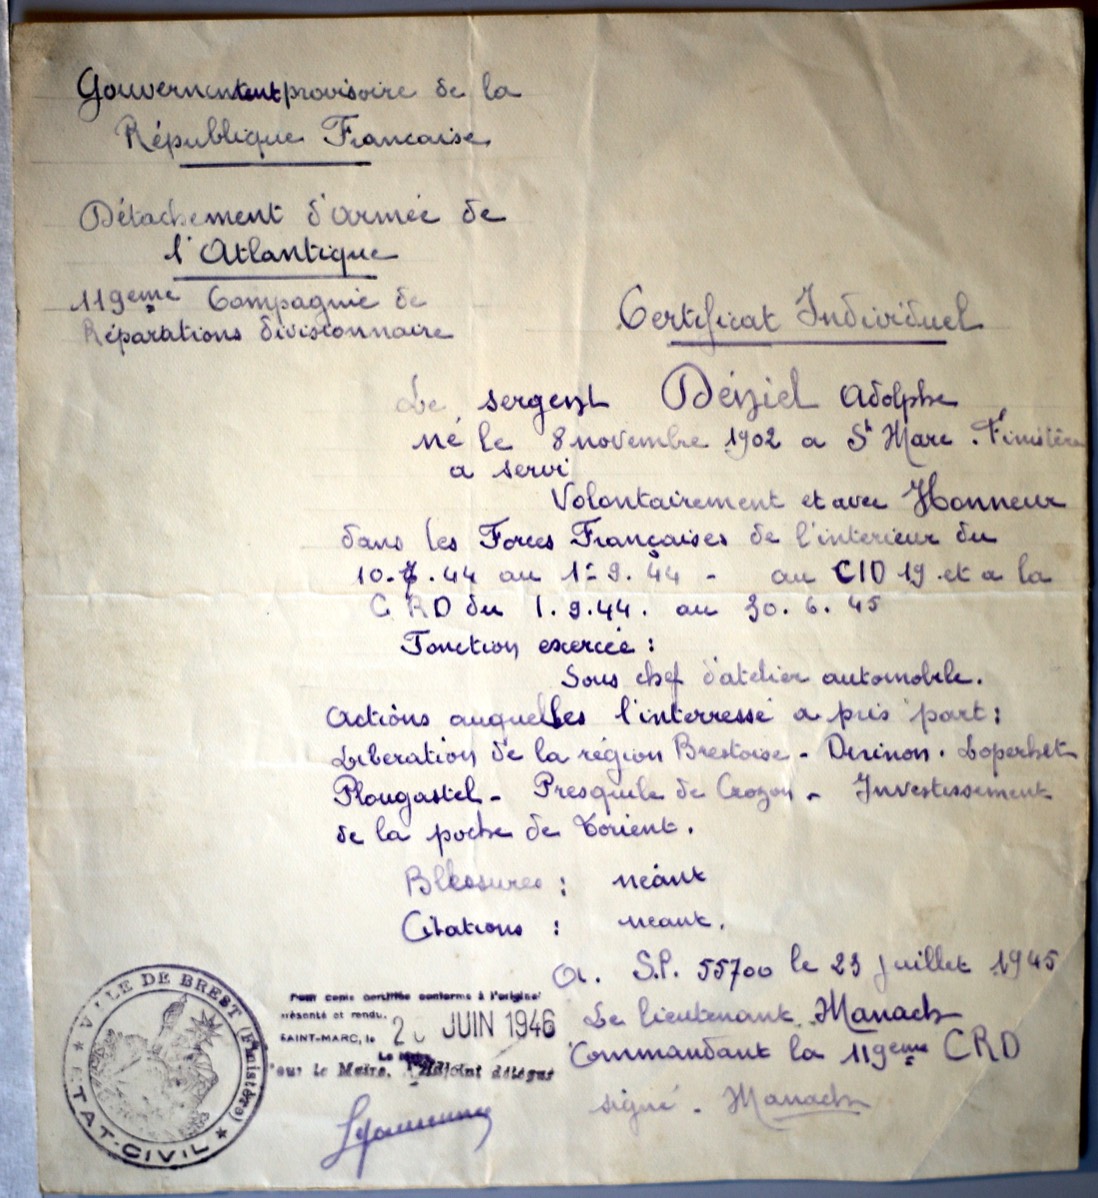 Gouvernement provisoire de la
République Francaise
Détachement d'armée de
l'Atlantique
119eme Compagnie de
Réparations divisionnaire
Certificat Individuel
Le sergent Déniel Adolphe
né le 8 novembre 1902 a St Marc. Finistère
a servi
Volontairement et avec Honneur
dans les Forces Françaises de l'interieur du
10.7.44 au 1º 9. 44 - au CID 19 et a la
C RD du 1.9.44. au 30.6.45
Fonction exercée :
Sous chef d'atelier automobile.
Actions auquelles l'interressé a pris part :
Liberation de la région Brestoise - Dirinon. Loperhet
Plougastel - Presquile de Crozon - Investissement
de la poche de Lorient.
Blessures : néant
Citations : neant.
A. S.P. 55700 le 23 juillet 1945
Le lieutenant Manach
Commandant la 119eme CRD
signé. Manach
Pour copie certifiée conforme à l'original
présenté et rendu.
SAINT-MARC, le 2 JUIN 1946
Le Maire,
Pour le Maire, l'Adjoint délégué
VILLE DE BREST (Finistère)
ETAT-CIVIL